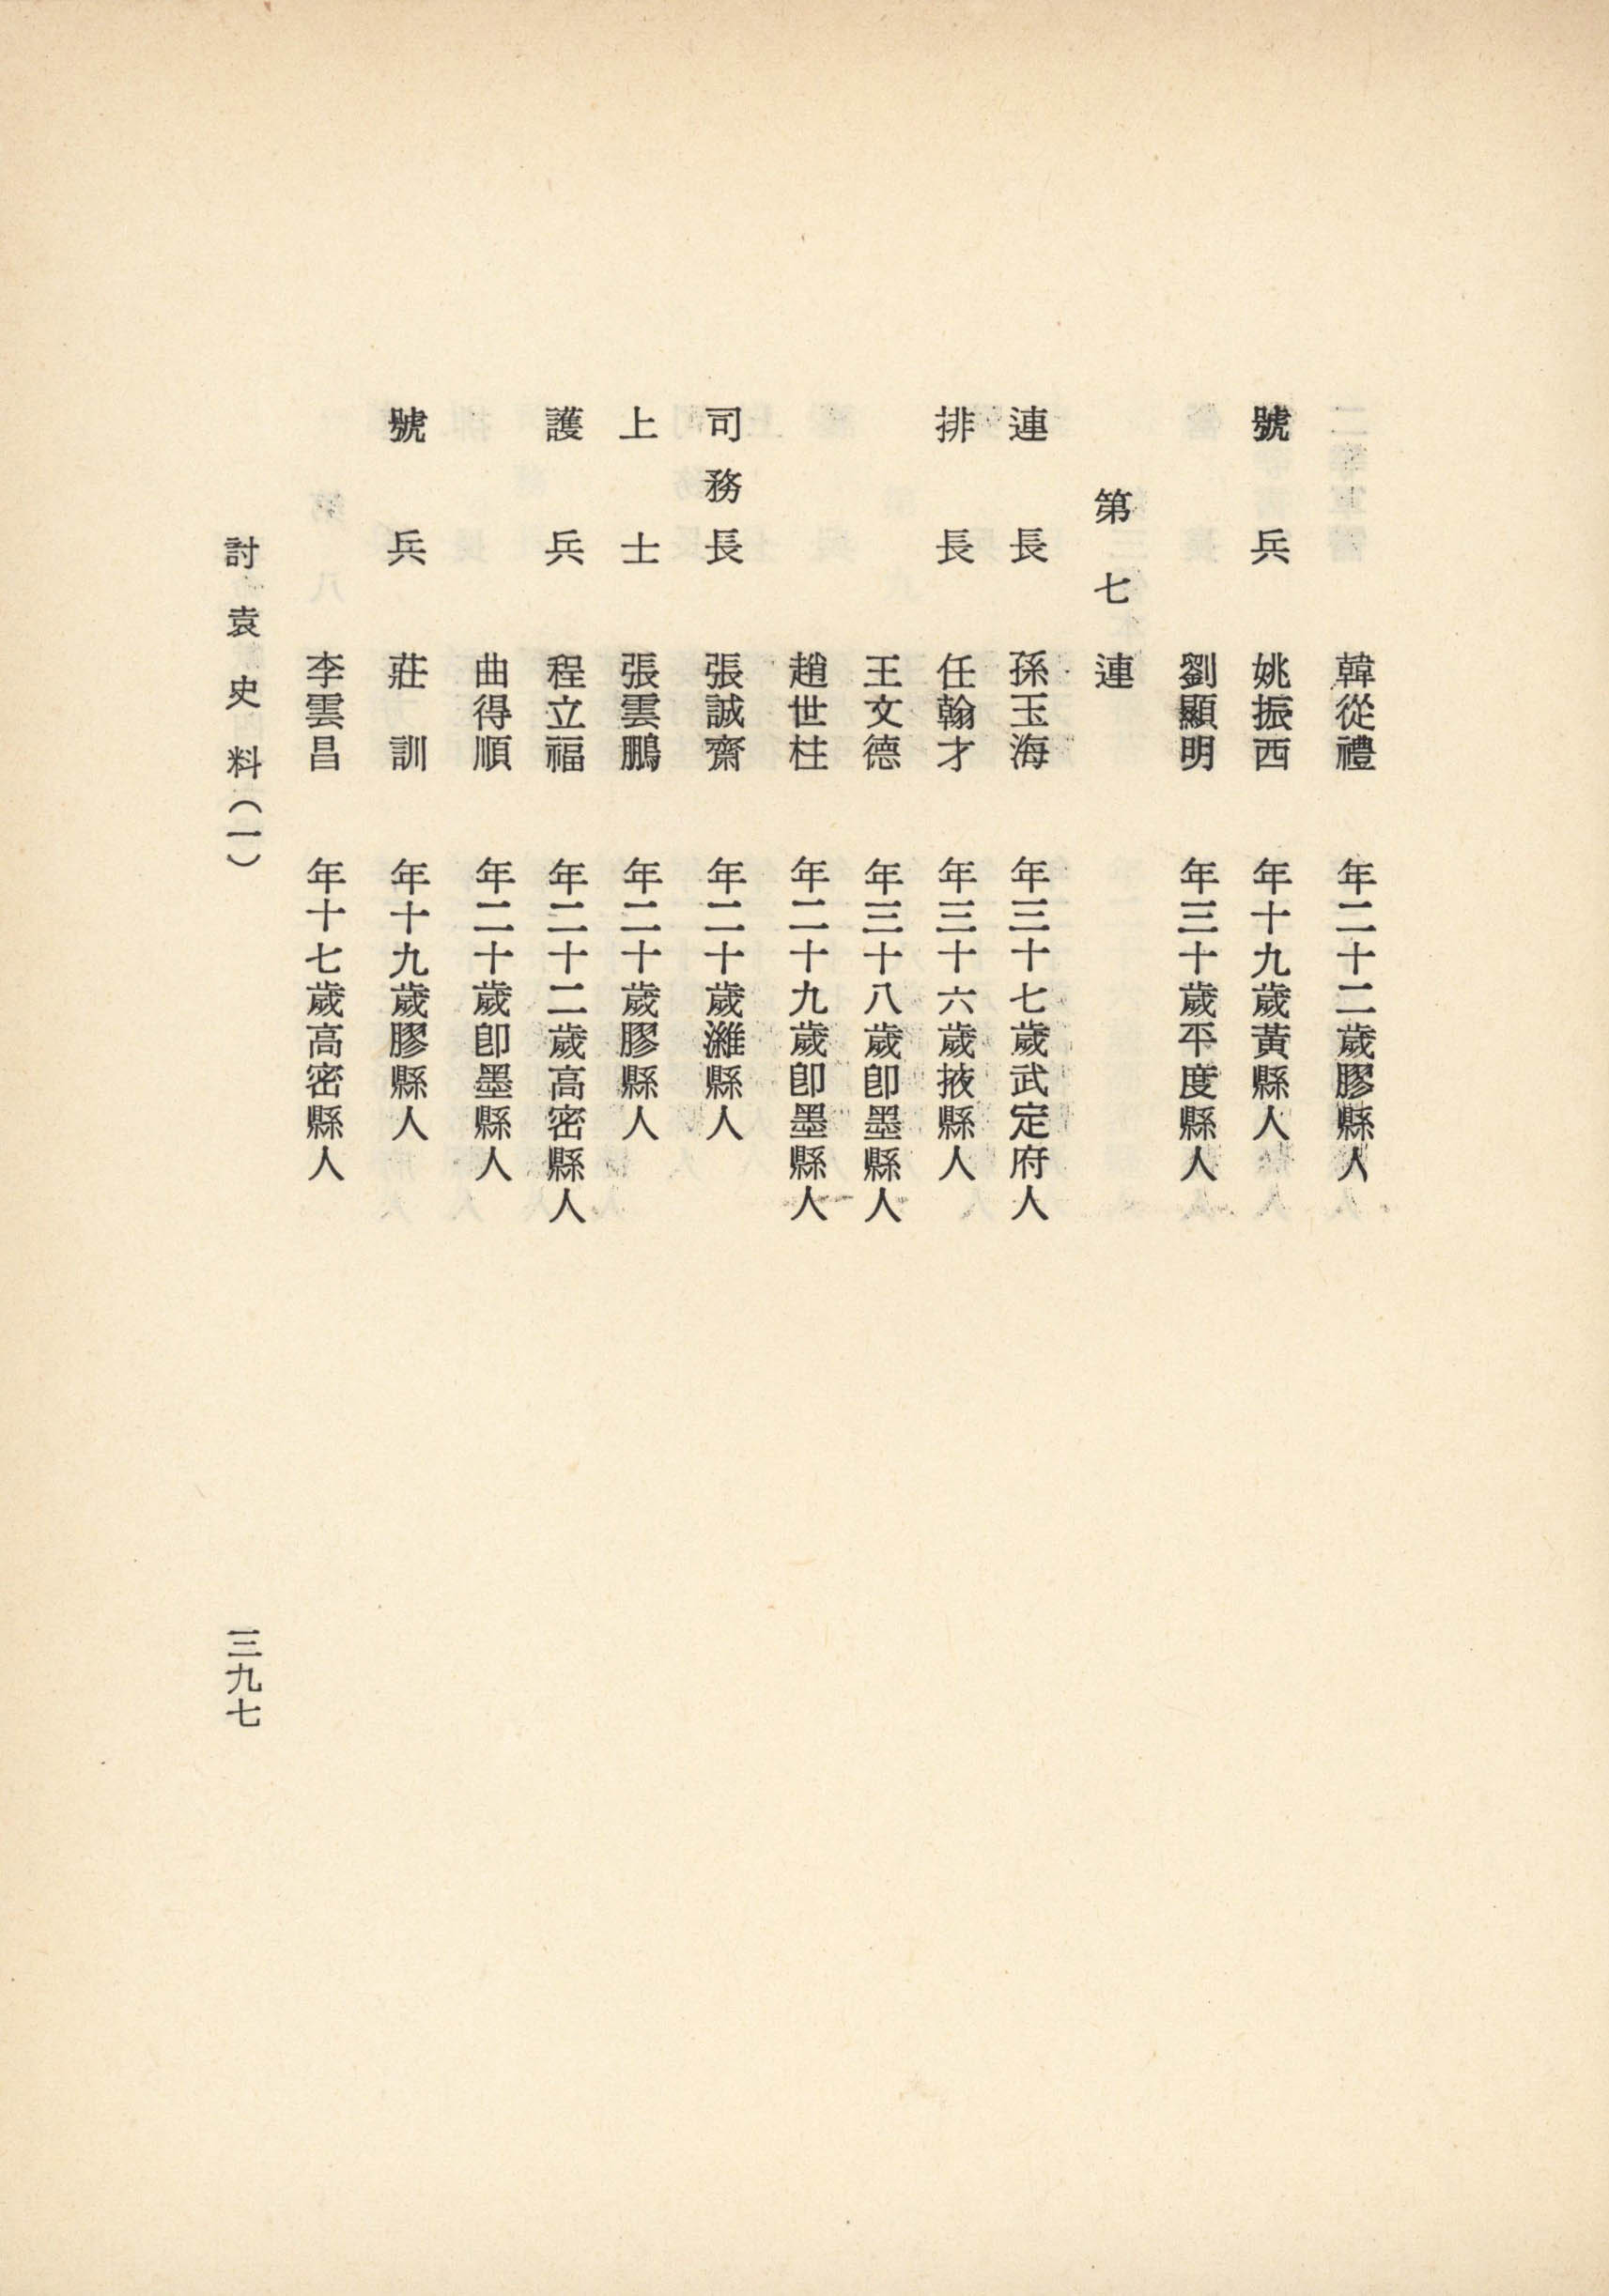 韓從禮 年二十二歲膠縣人
號兵 姚振西 年十九歲黃縣人
劉顯明 年三十歲平度縣人
第七連
連長 孫玉海 年三十七歲武定府人
排長 任翰才 年三十六歲掖縣人
王文德 年三十八歲卽墨縣人
趙世柱 年二十九歲卽墨縣人
司務長 張誠齋 年二十歲濰縣人
上士 張雲鵬 年二十歲膠縣人
護兵 程立福 年二十二歲高密縣人
曲得順 年二十歲卽墨縣人
號兵 莊訓 年十九歲膠縣人
李雲昌 年十七歲高密縣人
討袁史料(一)
三九七